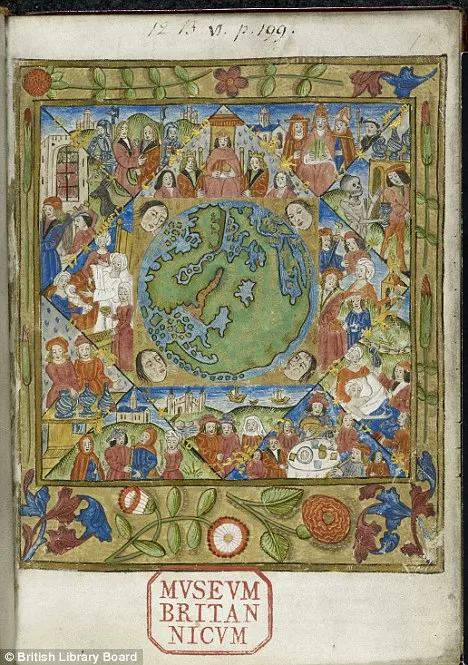 12 B VI. p. 199.
MVSEVM
BRITAN
NICVM
© British Library Board